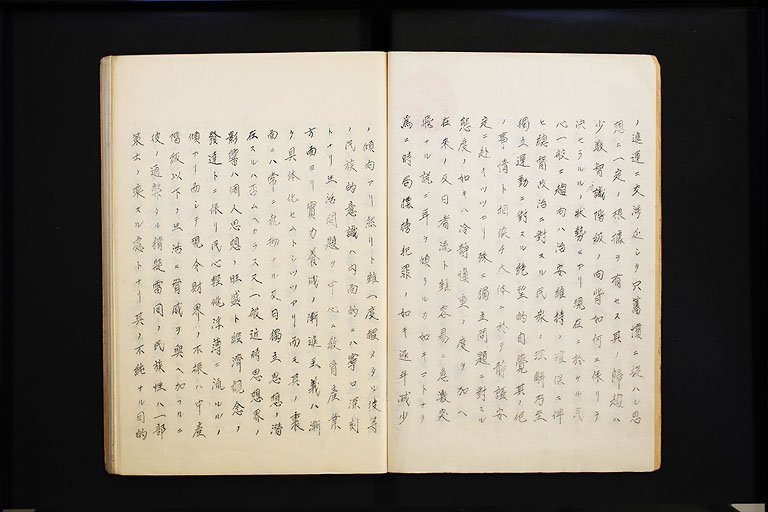 ノ進運ニ交渉 シク只舊慣ニ從ハレ思
想ニ一定ノ根據ヲ有セス其ノ歸趨ハ
少数智識階級ノ向背如何ニ依リテ
決セラルルノ状勢ニアリ現在ニ於ケル民
心一般ニ趨向ハ治安維持ノ確保ニ伴
ヒ總督政治ニ對スル民衆ノ理解乃至
獨立運動ニ對スル絶望的自覺其ノ他
ノ事情ト相俟チ大体ニ於テ静謐安
定ニ赴キツツアリ殊ニ獨立問題ニ對スル
態度ノ如キハ冷静慎重ノ度ヲ加ヘ
在來ノ反日者流ト雖容易ニ 激突
飛ナル説ニ耳ヲ傾クルカ如キコトナク
爲ニ時局標榜犯罪ノ如キ逐年減少
ノ傾向アリ然リト雖一度醒メタル彼等
ノ民族的意識ハ内面的ニハ寧ロ深刻
トナリ生活問題ヲ中心ニ教育産業
方面ヨリ實力養成ノ漸進主義ハ漸
ク具体化セムトシツツアリ而モ其ノ裏
面ニハ常ニ ナル反日獨立思想ノ潜
在スルハ否ムヘカラス又一般近時思想界ノ
影響ハ 人思想ノ旺盛ト經濟觀念ノ
發達トニ依リ民心輕佻浮薄ニ流ルルノ
傾アリ而シテ現今財界ノ不振ハ中産
階級以下ノ生活ニ脅威ヲ與ヘ加フルニ
彼ノ通弊タル猜疑雷同ノ民族性ハ一部
策士ノ乘スル處トナリ其ノ不純ナル目的